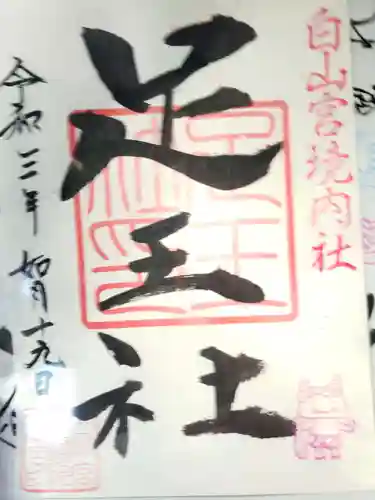 白山宮境内社
足王社
令和三年 如月十九日